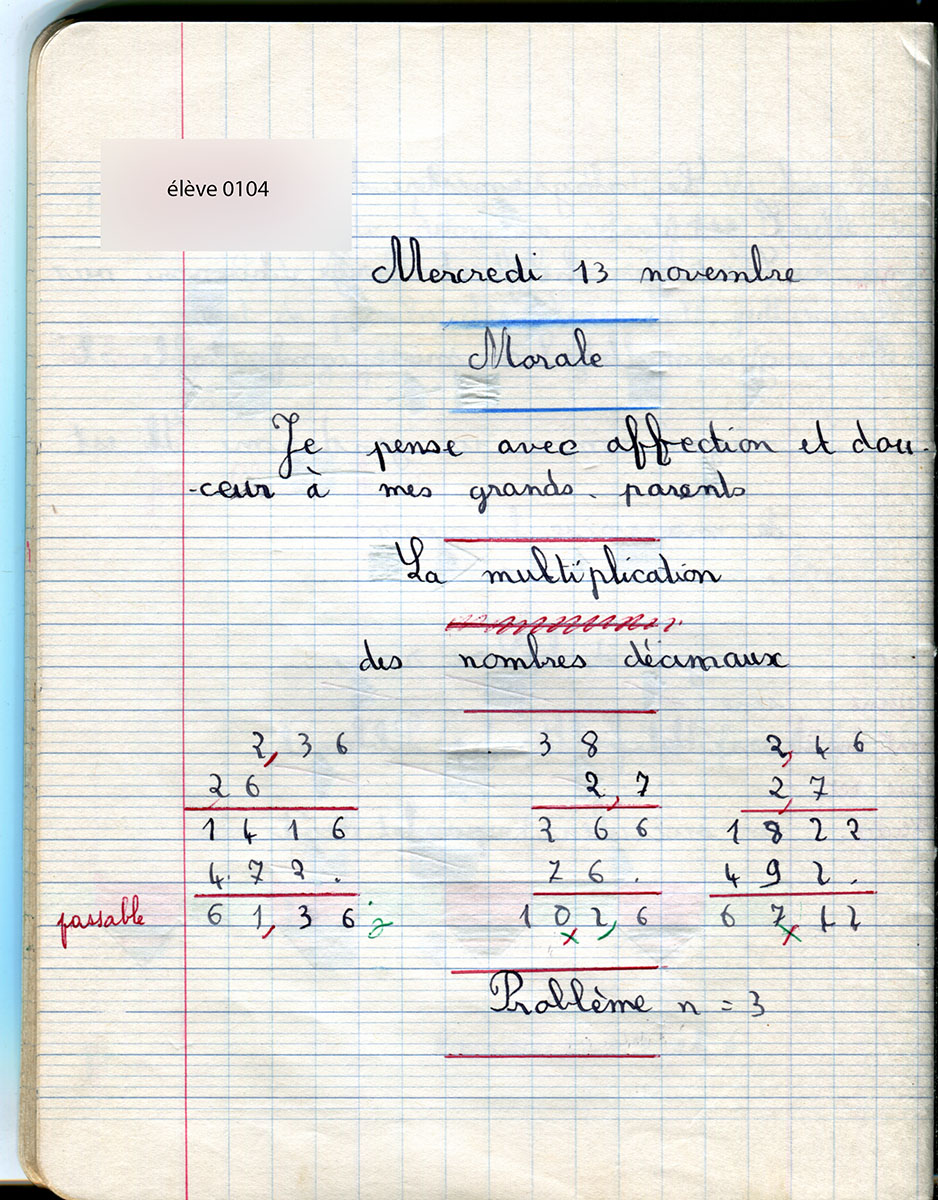 élève 0104
Mercredi 13 novembre
Morale
Je pense avec affection et dou-
-ceur à mes grands-parents
La multiplication
des nombres décimaux
2,36 38 2,46
26 2,7 2,7
1416 266 1822
472. 76. 492.
passable 61,36 j 102,6 67,42
Problème n = 3